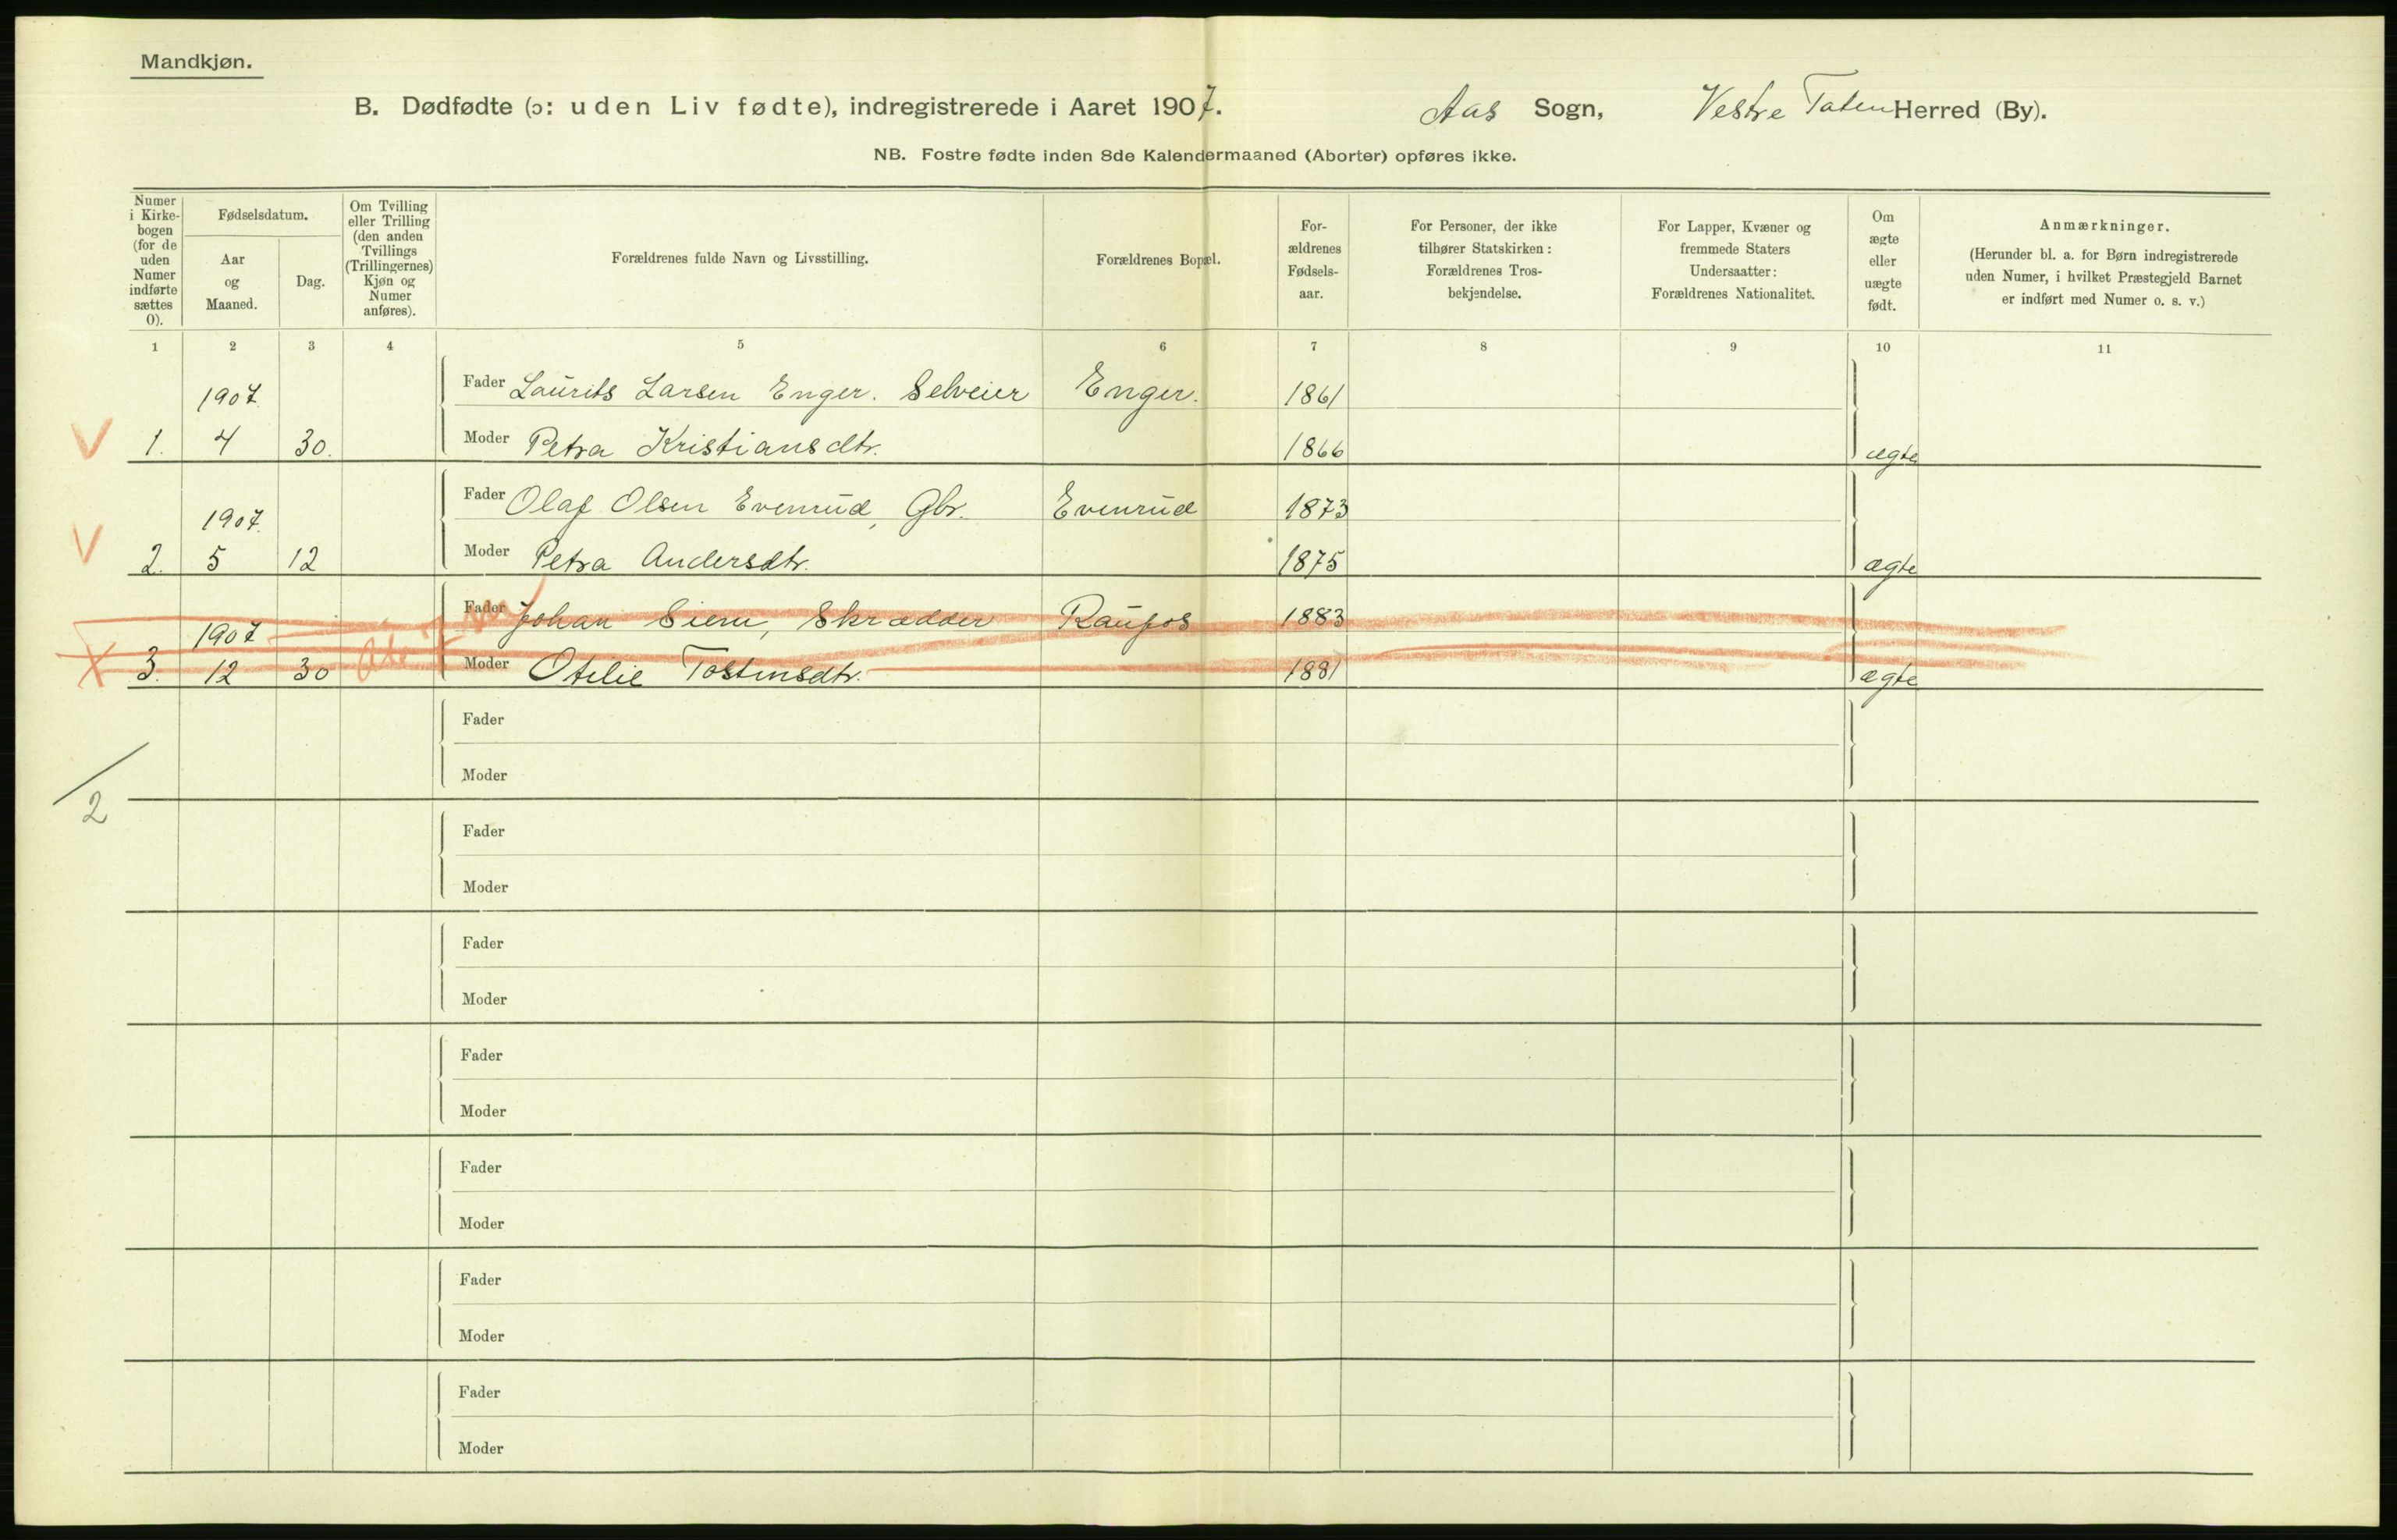 Mandkjøn.
B. Dødfødte (ɔ: uden Liv fødte), indregistrerede i Aaret 1907. Aas Sogn, Vestre Toten Herred (By).
NB. Fostre fødte inden 8de Kalendermaaned (Aborter) opføres ikke.
Numer i Kirke-bogen (for de uden Numer indførte sættes 0).
Fødselsdatum.
Aar og Maaned.
Dag.
Om Tvilling eller Trilling (den anden Tvillings (Trillingernes) Kjøn og Numer anføres).
Forældrenes fulde Navn og Livsstilling.
Forældrenes Bopæl.
For-ældrenes Fødsels-aar.
For Personer, der ikke tilhører Statskirken: Forældrenes Tros-bekjendelse.
For Lapper, Kvæner og fremmede Staters Undersaatter: Forældrenes Nationalitet.
Om ægte eller uægte født.
Anmærkninger.
(Herunder bl. a. for Børn indregistrerede uden Numer, i hvilket Præstegjeld Barnet er indført med Numer o. s. v.)
1 2 3 4 5 6 7 8 9 10 11
1907. Fader Laurits Larsen Enger. Selveier Enger. 1861
V 1. 4 30. Moder Petra Kristiansdtr. 1866 ægte
1907. Fader Olaf Olsen Evenrud, Gbr. Evenrud 1873
V 2. 5 12 Moder Petra Andersdtr. 1875 ægte
1907 Fader Johan Siem, Skrædder Raufos 1883
X 3. 12 30 Moder Otilie Tostensdtr. 1881 ægte
Fader
Moder
2
Fader
Moder
Fader
Moder
Fader
Moder
Fader
Moder
Fader
Moder
Fader
Moder